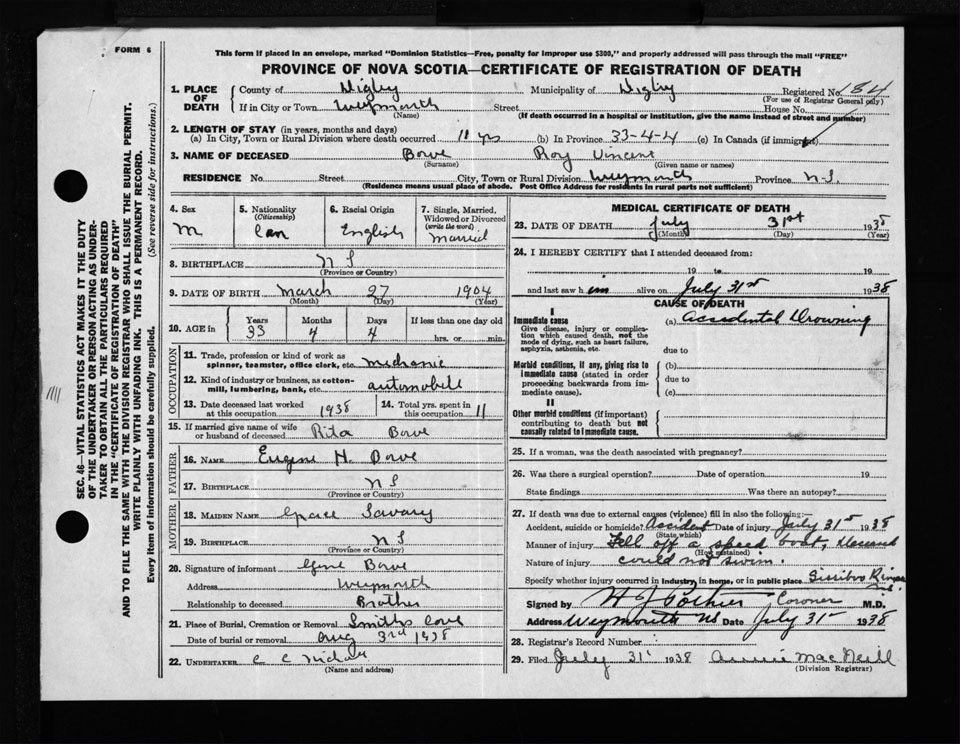 FORM 6
This form if placed in an envelope, marked "Dominion Statistics—Free, penalty for improper use $300," and properly addressed will pass through the mail "FREE"
PROVINCE OF NOVA SCOTIA—CERTIFICATE OF REGISTRATION OF DEATH
1. PLACE OF DEATH
County of Digby Municipality of Digby Registered No. 184
(For use of Registrar General only)
If in City or Town Weymouth Street House No.
(Name) (If death occurred in a hospital or institution, give the name instead of street and number)
2. LENGTH OF STAY (in years, months and days)
(a) In City, Town or Rural Division where death occurred 11 yrs (b) In Province 33-4-4 (c) In Canada (if immigrant)
3. NAME OF DECEASED Bowe Roy Vincent
(Surname) (Given name or names)
RESIDENCE No. Street City, Town or Rural Division Weymouth Province N.S.
(Residence means usual place of abode. Post Office Address for residents in rural parts not sufficient)
4. Sex
M
5. Nationality (Citizenship)
Can
6. Racial Origin
English
7. Single, Married, Widowed or Divorced (write the word)
Married
8. BIRTHPLACE N S
(Province or Country)
9. DATE OF BIRTH March 27 1904
(Month) (Day) (Year)
10. AGE in Years Months Days If less than one day old
33 4 4 hrs. or min.
OCCUPATION
11. Trade, profession or kind of work as spinner, teamster, office clerk, etc. mechanic
12. Kind of industry or business, as cotton-mill, lumbering, bank, etc. automobile
13. Date deceased last worked at this occupation 1938
14. Total yrs. spent in this occupation 11
15. If married give name of wife or husband of deceased Rita Bowe
FATHER
16. NAME Eugene H. Bowe
17. BIRTHPLACE N S
(Province or Country)
MOTHER
18. MAIDEN NAME Grace Savary
19. BIRTHPLACE N S
(Province or Country)
20. Signature of informant Gene Bowe
Address Weymouth
Relationship to deceased Brother
21. Place of Burial, Cremation or Removal Smiths Cove
Date of burial or removal Aug 3rd 1938
22. UNDERTAKER C C
(Name and address)
MEDICAL CERTIFICATE OF DEATH
23. DATE OF DEATH July 31st 1938
(Month) (Day) (Year)
24. I HEREBY CERTIFY that I attended deceased from:
19 to 19
and last saw him alive on July 31st 1938
CAUSE OF DEATH
I
Immediate cause (a) Accidental Drowning
Give disease, injury or complication which caused death, not the mode of dying, such as heart failure, asphyxia, asthenia, etc.
due to
Morbid conditions, if any, giving rise to immediate cause (stated in order proceeding backwards from immediate cause).
(b)
due to
(c)
II
Other morbid conditions (if important) contributing to death but not causally related to immediate cause.
25. If a woman, was the death associated with pregnancy?
26. Was there a surgical operation? Date of operation 19
State findings Was there an autopsy?
27. If death was due to external causes (violence) fill in also the following:—
Accident, suicide or homicide? Accident Date of injury July 31st 1938
(State which)
Manner of injury Fell off a speed boat, deceased
(How sustained)
Nature of injury could not swim.
Specify whether injury occurred in industry, in home, or in public place Sissiboo River
N.S.
Signed by Coroner M.D.
Address Weymouth NS Date July 31st 1938
28. Registrar's Record Number
29. Filed July 31st 1938 Annie MacNeill
(Division Registrar)
SEC. 46—VITAL STATISTICS ACT MAKES IT THE DUTY
OF THE UNDERTAKER OR PERSON ACTING AS UNDER-
TAKER TO OBTAIN ALL THE PARTICULARS REQUIRED
IN THE "CERTIFICATE OF REGISTRATION OF DEATH"
AND TO FILE THE SAME WITH THE DIVISION REGISTRAR WHO SHALL ISSUE THE BURIAL PERMIT.
WRITE PLAINLY WITH UNFADING INK. THIS IS A PERMANENT RECORD.
Every item of information should be carefully supplied. (See reverse side for instructions.)